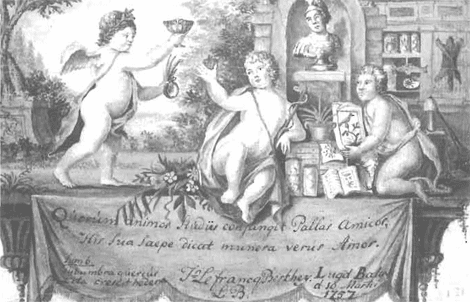 Quorum animos studiis conjungit Pallas Amicos,
His sua saepe dicat munera verus Amor.
Symb.
sub umbra quercus
Laeta crescit hedera
Lefrancq Berkhey
L. B.
Lugd Bat
d 16 Martii
1757